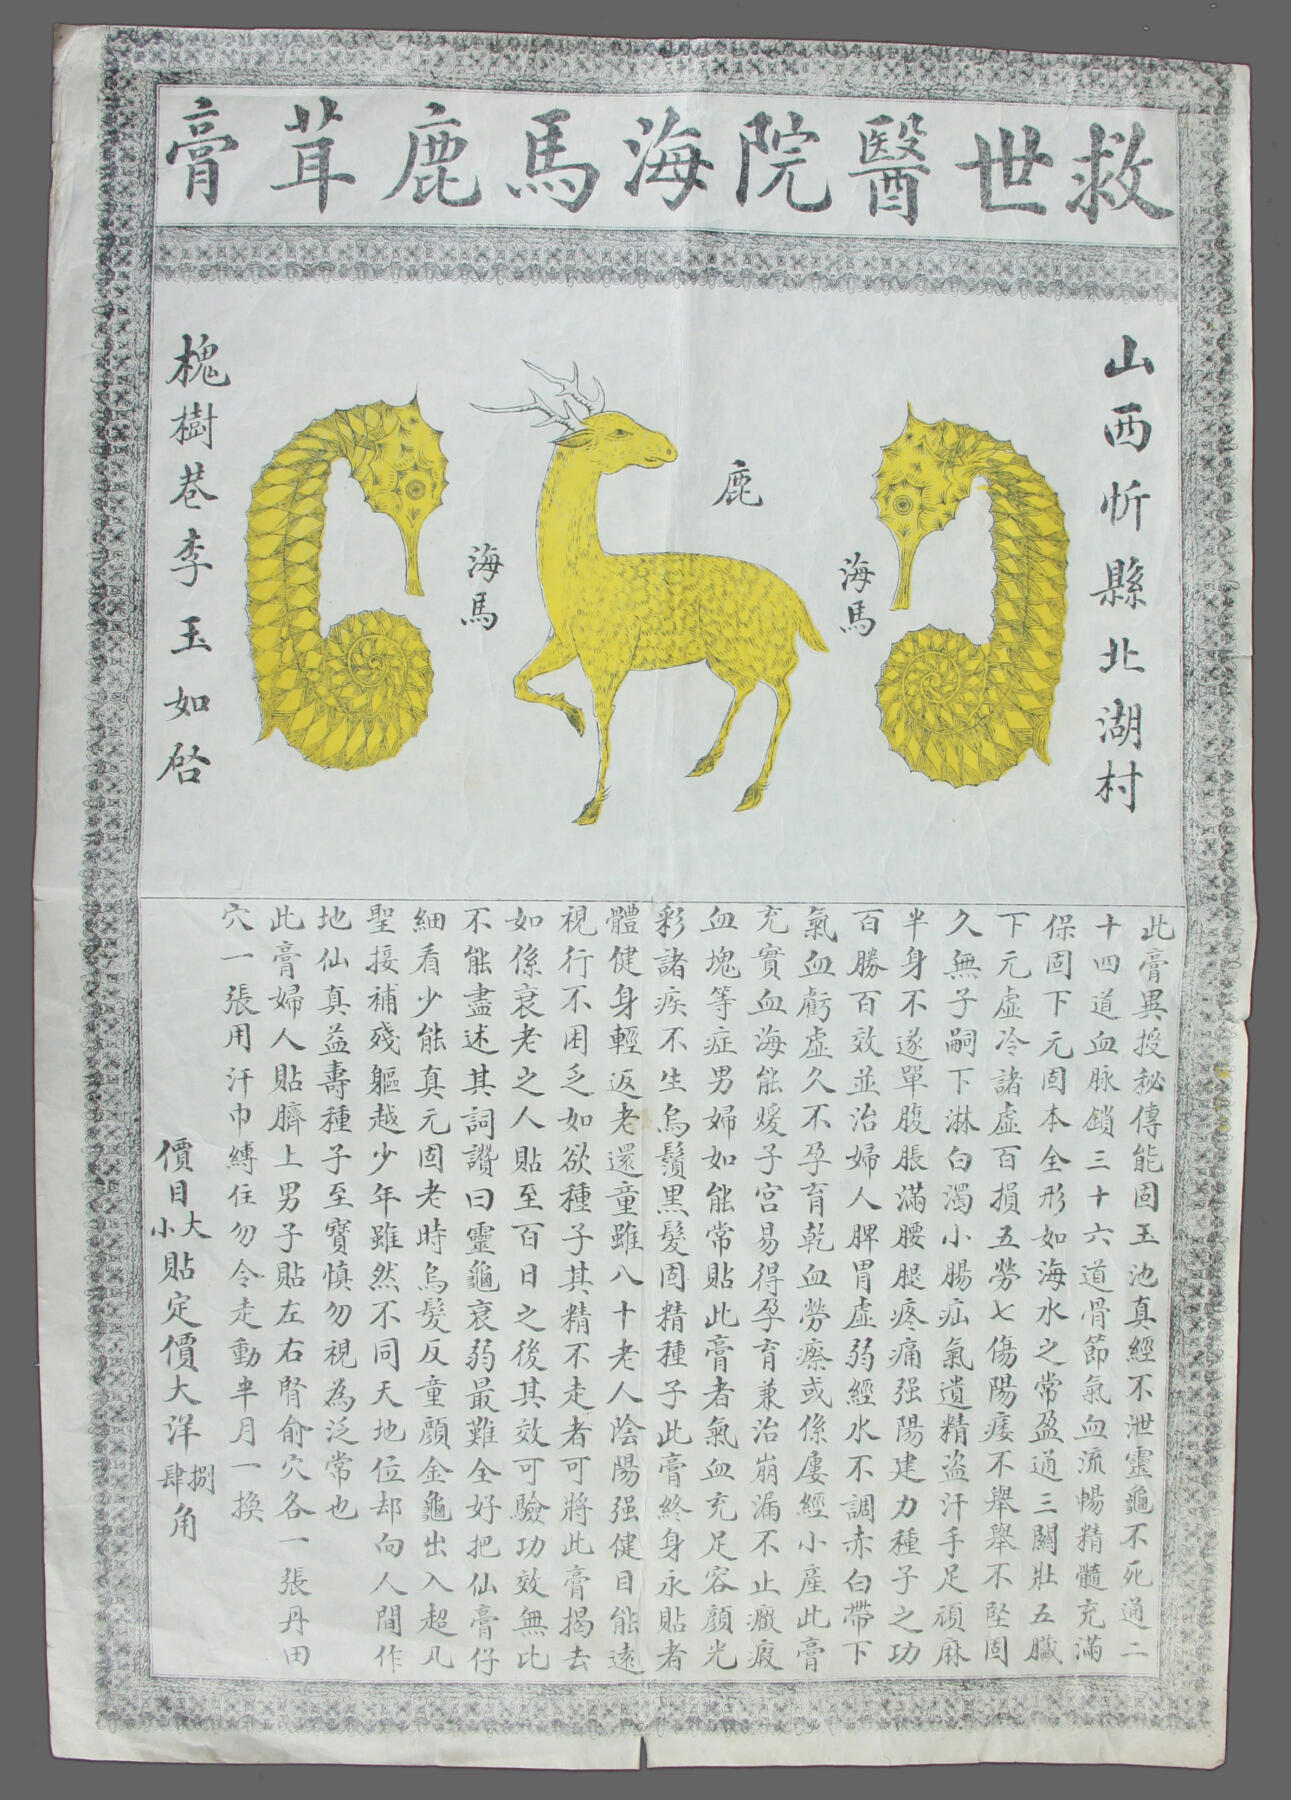 救世醫院海馬鹿茸膏
山西忻縣北湖村
海馬
鹿
海馬
槐樹巷李玉如啓
此膏異授秘傳能固玉池真經不泄靈龜不死通二
十四道血脉鎖三十六道骨節氣血流暢精髓充滿
保固下元固本全形如海水之常盈通三關壯五臟
下元虛冷諸虛百損五勞七傷陽痿不舉舉不堅固
久無子嗣下淋白濁小腸疝氣遺精盜汗手足頑麻
半身不遂單腹脹滿腰腿疼痛强陽建力種子之功
百勝百效並治婦人脾胃虛弱經水不調赤白帶下
氣血虧虛久不孕育乾血勞瘵或係屢經小產此膏
充實血海能煖子宮易得孕育兼治崩漏不止癥瘕
血塊等症男婦如能常貼此膏者氣血充足容顏光
彩諸疾不生烏鬚黑髮固精種子此膏終身永貼者
體健身輕返老還童雖八十老人陰陽强健目能遠
視行不困乏如欲種子其精不走者可將此膏揭去
如係衰老之人貼至百日之後其效可驗功效無比
不能盡述其詞讚曰靈龜衰弱最難全好把仙膏仔
細看少能真元固老時烏髮反童顏金龜出入超凡
聖接補殘軀越少年雖然不同天地位却向人間作
地仙真益壽種子至寶慎勿視為泛常也
此膏婦人貼臍上男子貼左右腎俞穴各一張丹田
穴一張用汗巾縛住勿令走動半月一換
價目大小貼定價大洋捌肆角